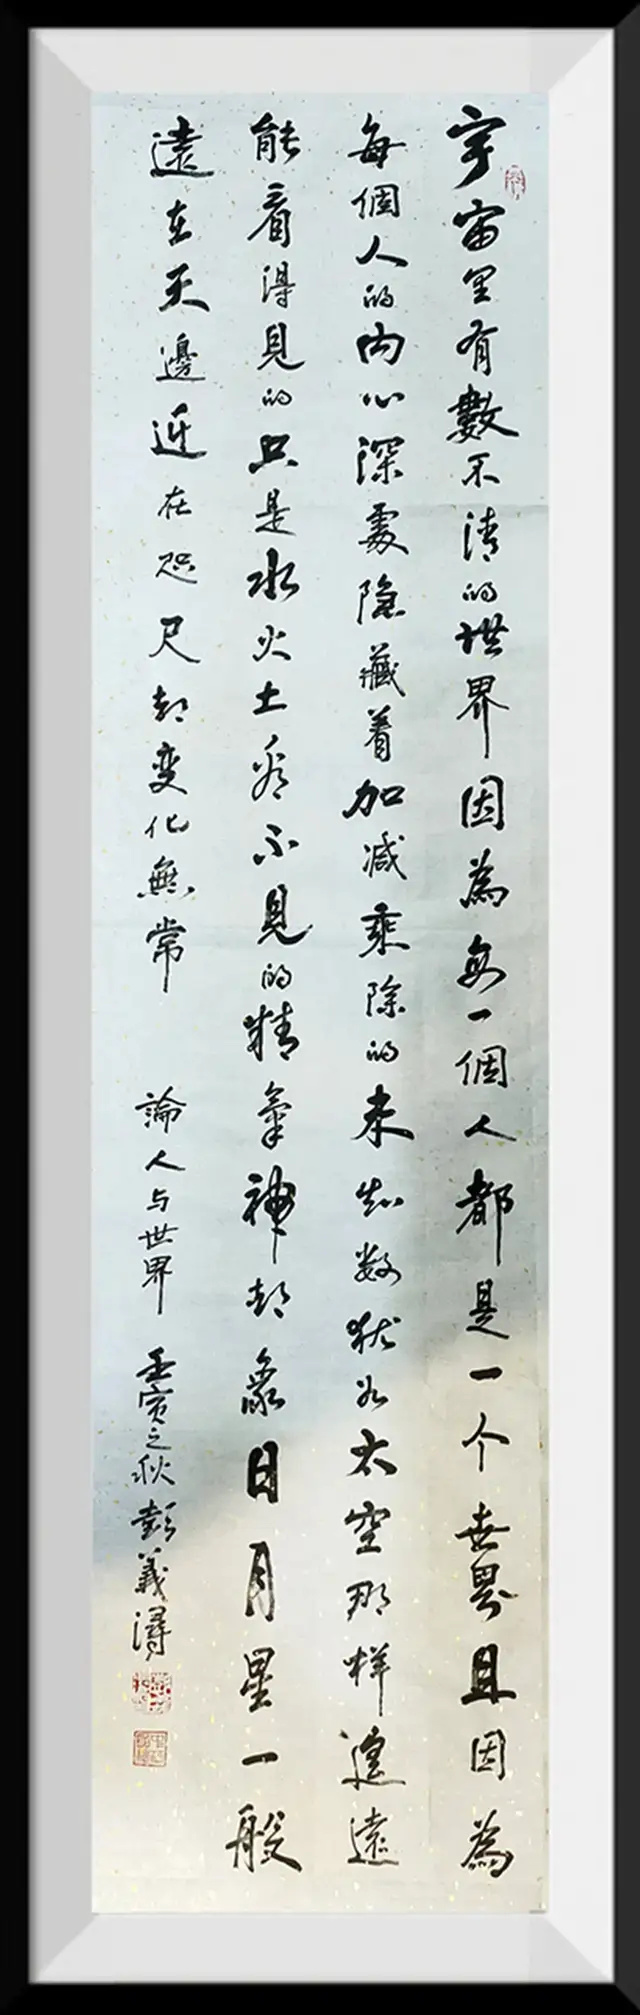 宇宙里有數不清的世界因為每一個人都是一个世界且因為
每個人的内心深處隐藏着加减乘除的未知数犹如太空那样遥遠
能看得見的只是水火土看不見的精氣神却象日月星一般
遠在天邊近在咫尺却变化無常
論人与世界 壬寅之秋彭義潯